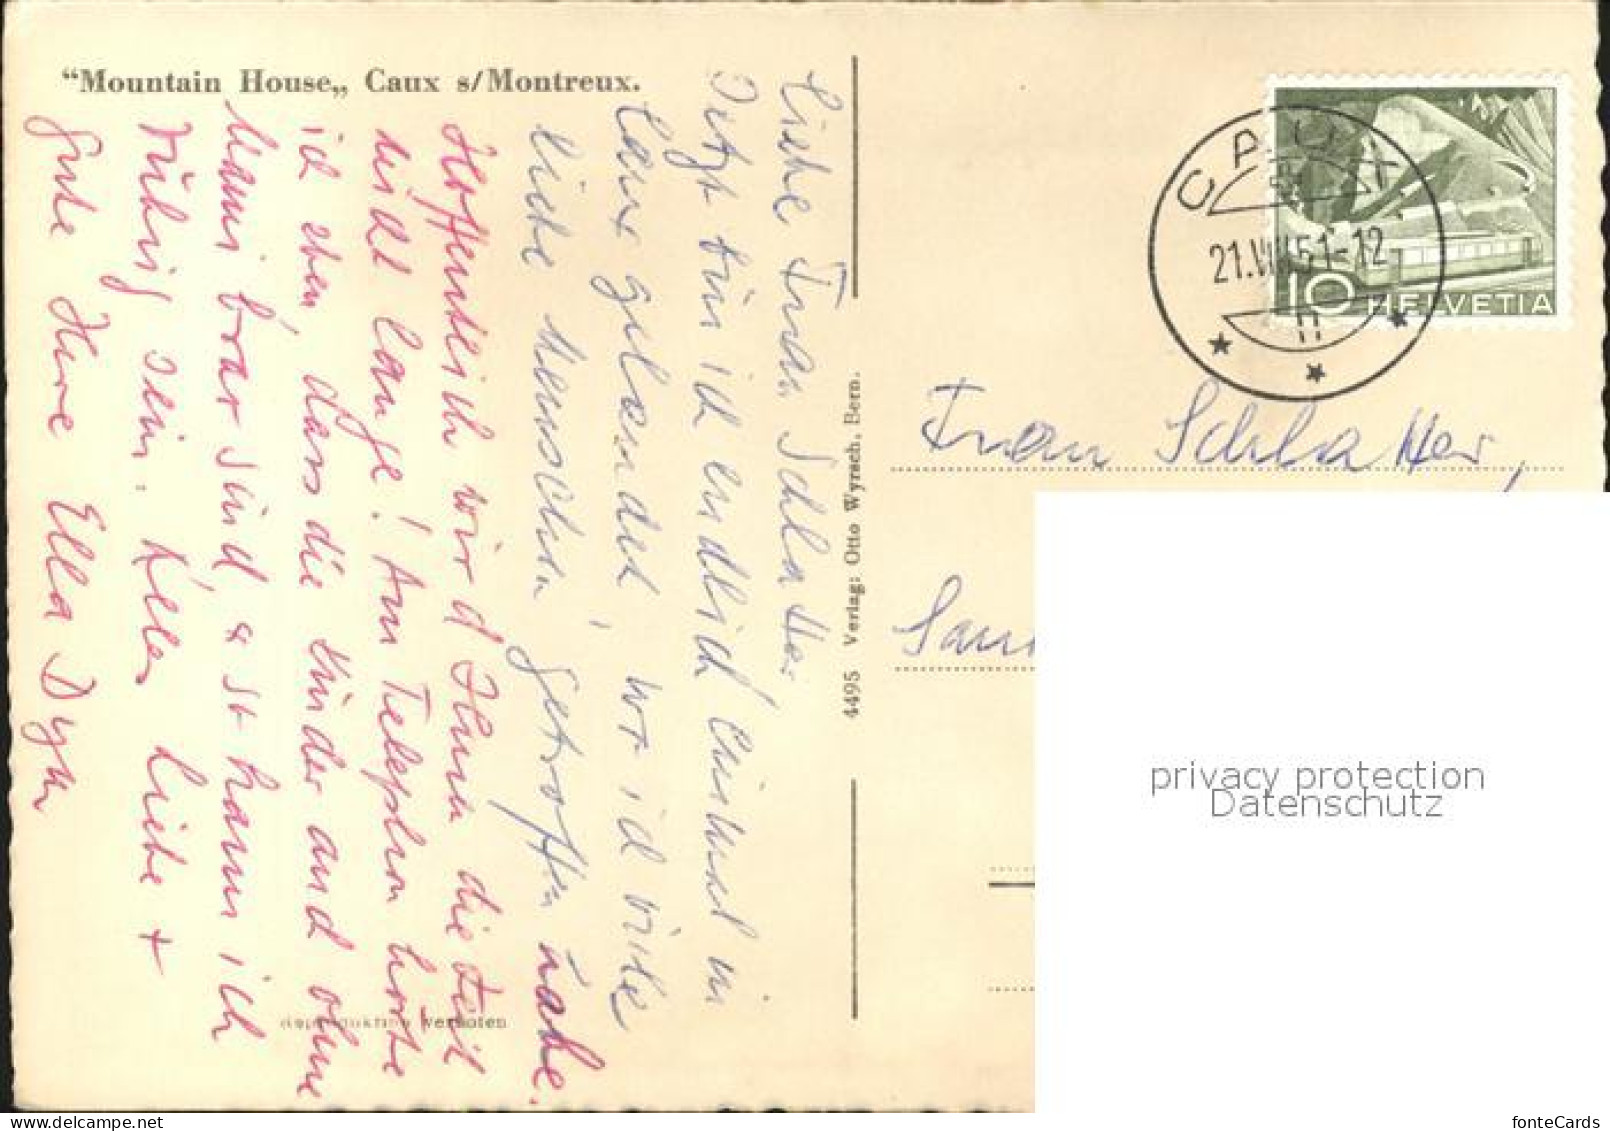 “Mountain House„ Caux s/Montreux.
Liebe Frau Schlatter
Jetzt bin ich endlich einmal in
Caux gelandet, wo ich viele
liebe Menschen getroffen habe.
Hoffentlich wird Ihnen die Zeit
nicht lange! Am Telephon hörte
ich eben, dass die Kinder auch ohne
Mami brav sind, & so kann ich
ruhig sein. Alles Liebe +
Gute Ihre Ella Dyk
4495 Verlag: Otto Wyrsch, Bern.
Reproduktion verboten
CAUX
21.VIII.51-12
10 HELVETIA
Frau Schlatter,
privacy protection
Datenschutz
fonteCards